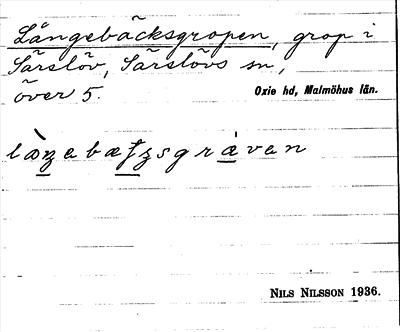 Långebäcksgropen, grop i
Särslöv, Särslövs sn,
över 5.
Oxie hd, Malmöhus län.
NILS NILSSON 1936.